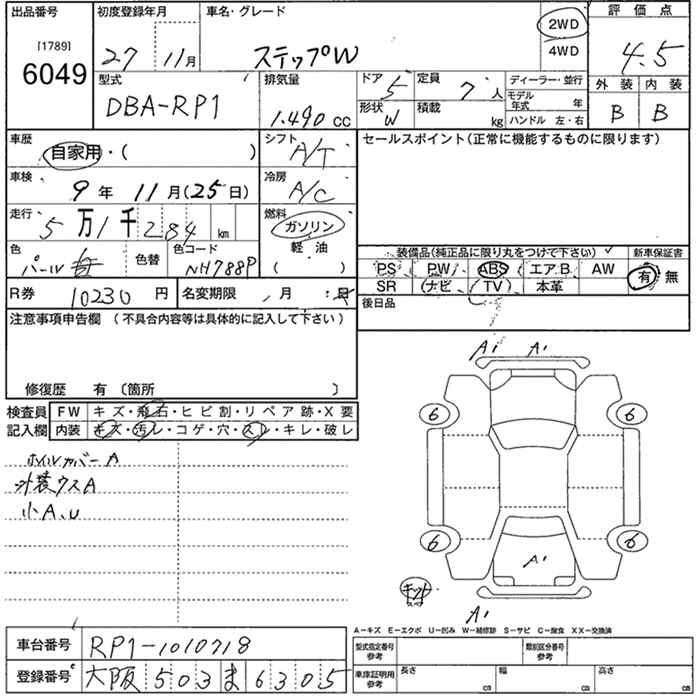 出品番号
[1789]
6049
初度登録年月
27 11月
車名・グレード
ステップW
2WD
4WD
評価点
4.5
外装 内装
B B
型式
DBA-RP1
排気量
1.490 cc
ドア
5
定員
7 人
形状
W
積載
kg
ディーラー・並行
モデル年式 年
ハンドル 左・右
車歴
自家用・( )
シフト
A/T
セールスポイント(正常に機能するものに限ります)
車検
9年 11月(25日)
冷房
A/C
走行
5万1千284 km
燃料
ガソリン
軽油
( )
色
パール
色替
色コード
NH788P
装備品(純正品に限り丸をつけて下さい)
新車保証書
PS PW ABS エアB AW
SR ナビ TV 本革
有 無
R券 10230円
名変期限 月 日
後日品
注意事項申告欄 (不具合内容等は具体的に記入して下さい)
修復歴 有 〔箇所 〕
検査員記入欄
FW キズ・飛石・ヒビ割・リペア跡・X要
内装 キズ・汚レ・コゲ・穴・スレ・キレ・破レ
ホイルカバーA
外装ウスA
小A、U
A1 A1
6 6
6 6
A1
キット
スペア
A1
A−キズ E−エクボ U−凹み W−補修跡 S−サビ C−腐食 XX−交換済
車台番号 RP1-1010718
登録番号 大阪 503 ま 6305
型式指定番号 参考
類別区分番号 参考
車庫証明用 参考
長さ cm
幅 cm
高さ cm